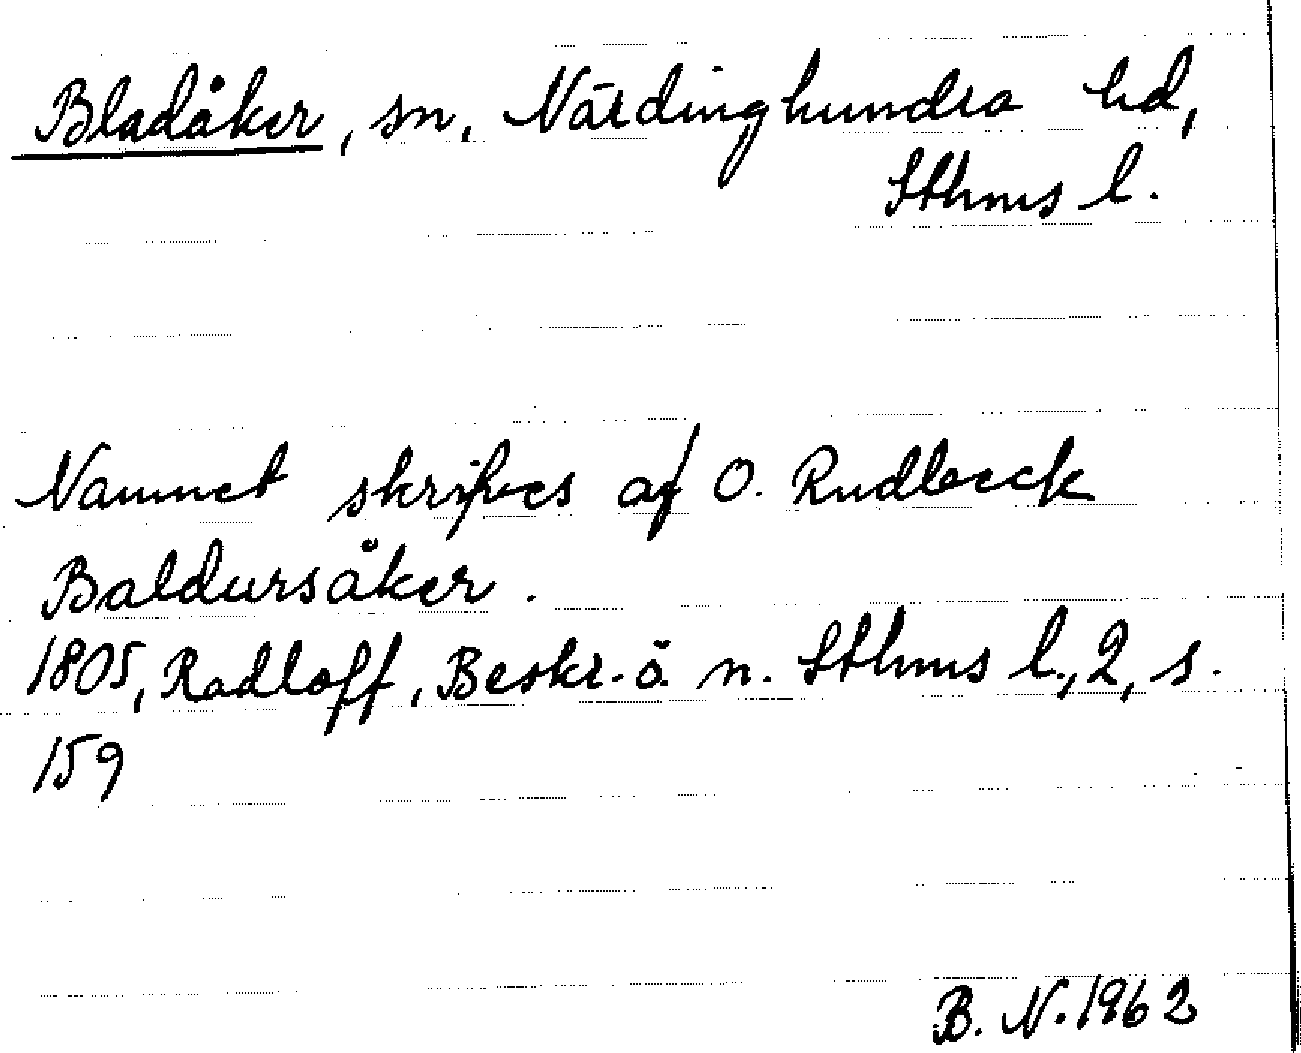 Bladåker, sn, Närdinghundra hd,
Sthms l.
Namnet skrifves af O. Rudbeck
Baldursåker.
1805, Radloff, Beskr. ö. n. Sthms l., 2, s.
159
B. N. 1962